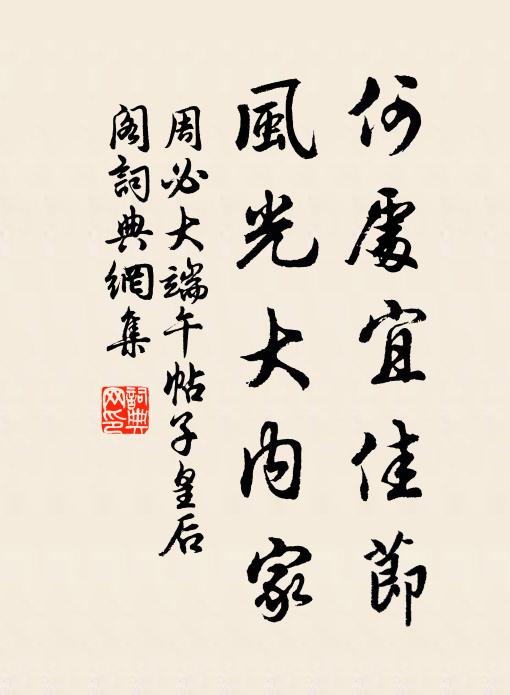 何處宜佳節
風光大内家
周必大端午帖子皇后
閣詞典網集
詞典網印